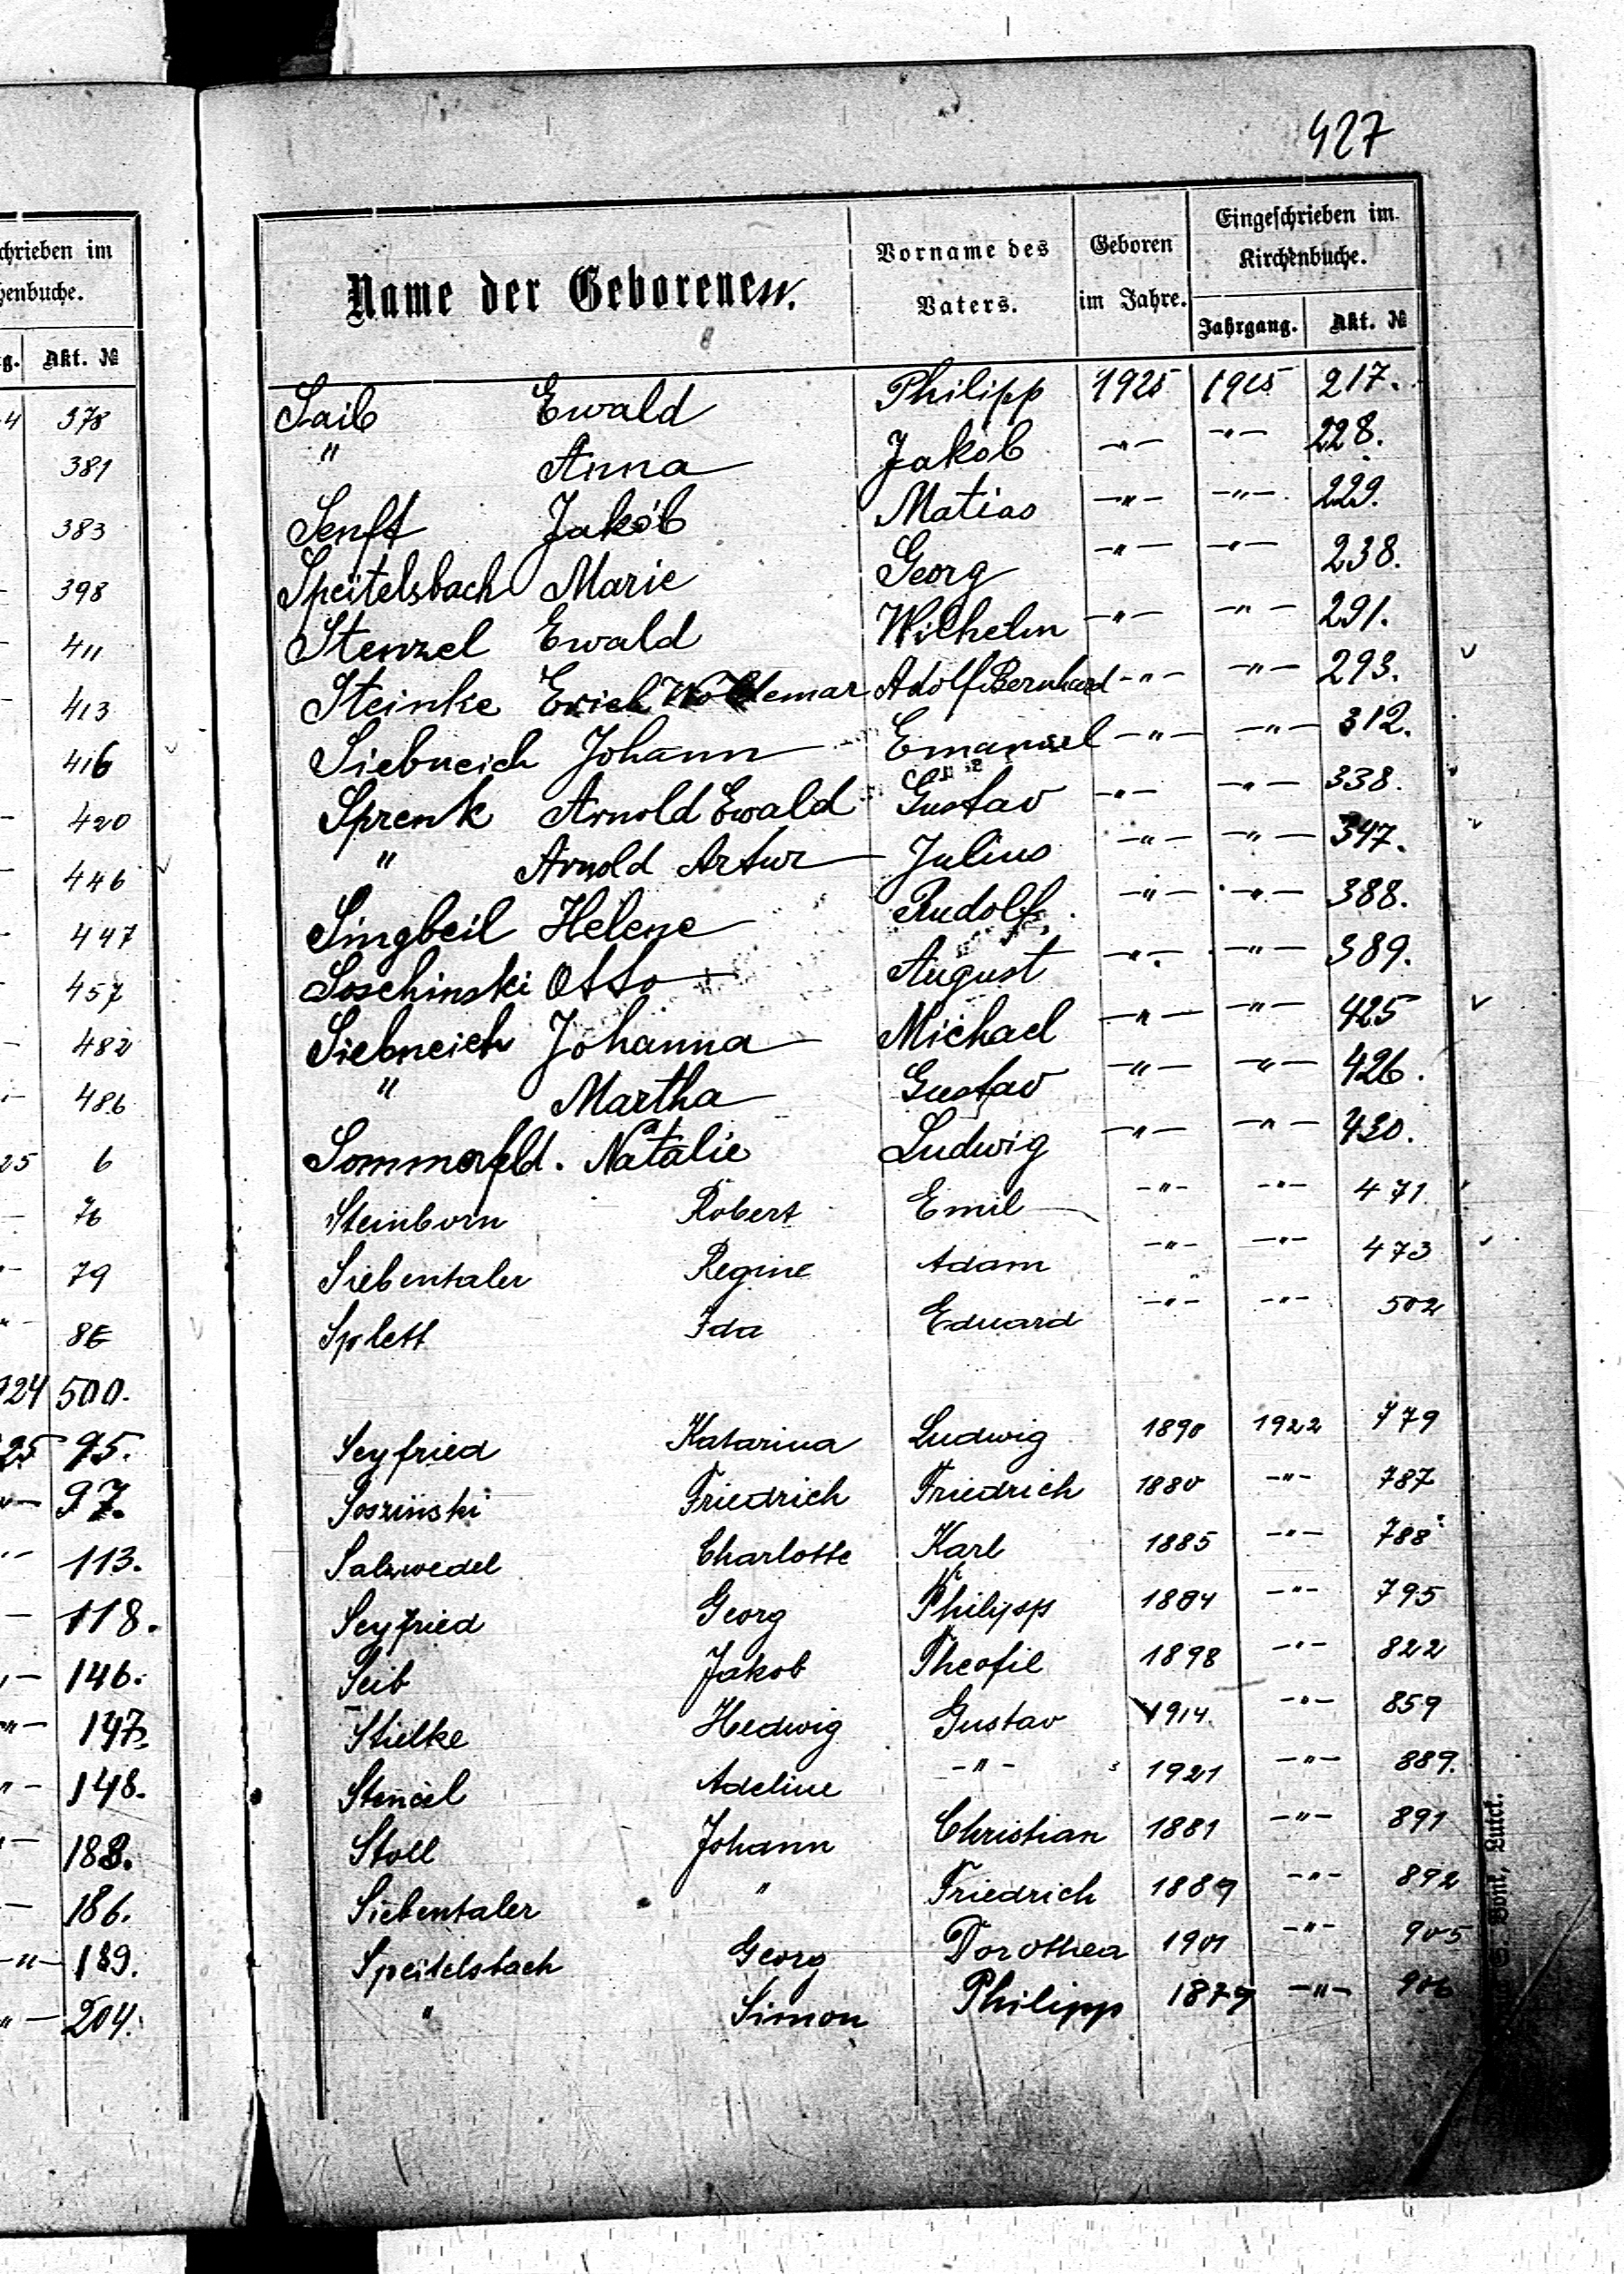 427
chrieben im
henbuche.
g. Akt. №
4 378
381
383
398
411
413
416
420
446
447
457
482
486
25 6
76
79
24 500.
25 95.
" 97.
113.
118.
146.
" 147.
" 148.
188.
186.
" 189.
" 204.
Name der Geborenen. Vorname des Vaters. Geboren im Jahre. Eingeschrieben im Kirchenbuche.
Jahrgang. Akt. №
Saib Ewald Philipp 1925 1925 217.
" Anna Jakob -"- -"- 228.
Senft Jakob Matias -"- -"- 229.
Speitelsbach Marie Georg -"- -"- 238.
Stenzel Ewald Wilhelm -"- -"- 291.
Steinke Erich Woldemar Adolf Bernhard -"- -"- 293.
Siebneich Johann Emanuel -"- -"- 312.
Sprenk Arnold Ewald Gustav -"- -"- 338.
" Arnold Artur Julius -"- -"- 347.
Singbeil Helene Rudolf -"- -"- 388.
Soschinski Otto August -"- -"- 389.
Siebneich Johanna Michael -"- -"- 425
" Martha Gustav -"- -"- 426.
Sommerfeld. Natalie Ludwig -"- -"- 430.
Steinborn Robert Emil -"- -"- 471.
Siebentaler Regine Adam -"- -"- 473
Splett Ida Eduard -"- -"- 502
Seyfried Katarina Ludwig 1890 1922 779
Soszinski Friedrich Friedrich 1880 -"- 787
Salzwedel Charlotte Karl 1885 -"- 788
Seyfried Georg Philipp 1884 -"- 795
Seib Jakob Theofil 1898 -"- 822
Stielke Hedwig Gustav 1914. -"- 859
Stencel Adeline -"- 1921 -"- 889.
Stoll Johann Christian 1881 -"- 891
Siebentaler " Friedrich 1889 -"- 892
Speitelsbach Georg Dorothea 1901 -"- 905
" Simon Philipp 1879 -"- 906